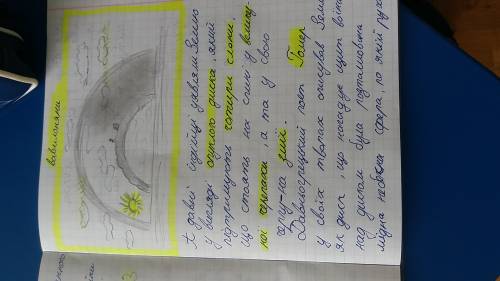 вавилоняни
А давні індійці уявляли Землю
у вигляді опуклого диска, який
підтримують чотири слони,
що стоять на спині у велику-
кої черепахи, а та у свою
чергу-на змії.
Давньогрецький поет Гомер
у своїх творах описував Землю
як диск, що нагадує щит воїна
над диском була розташована
мідна небесна сфера, по якій руха
3